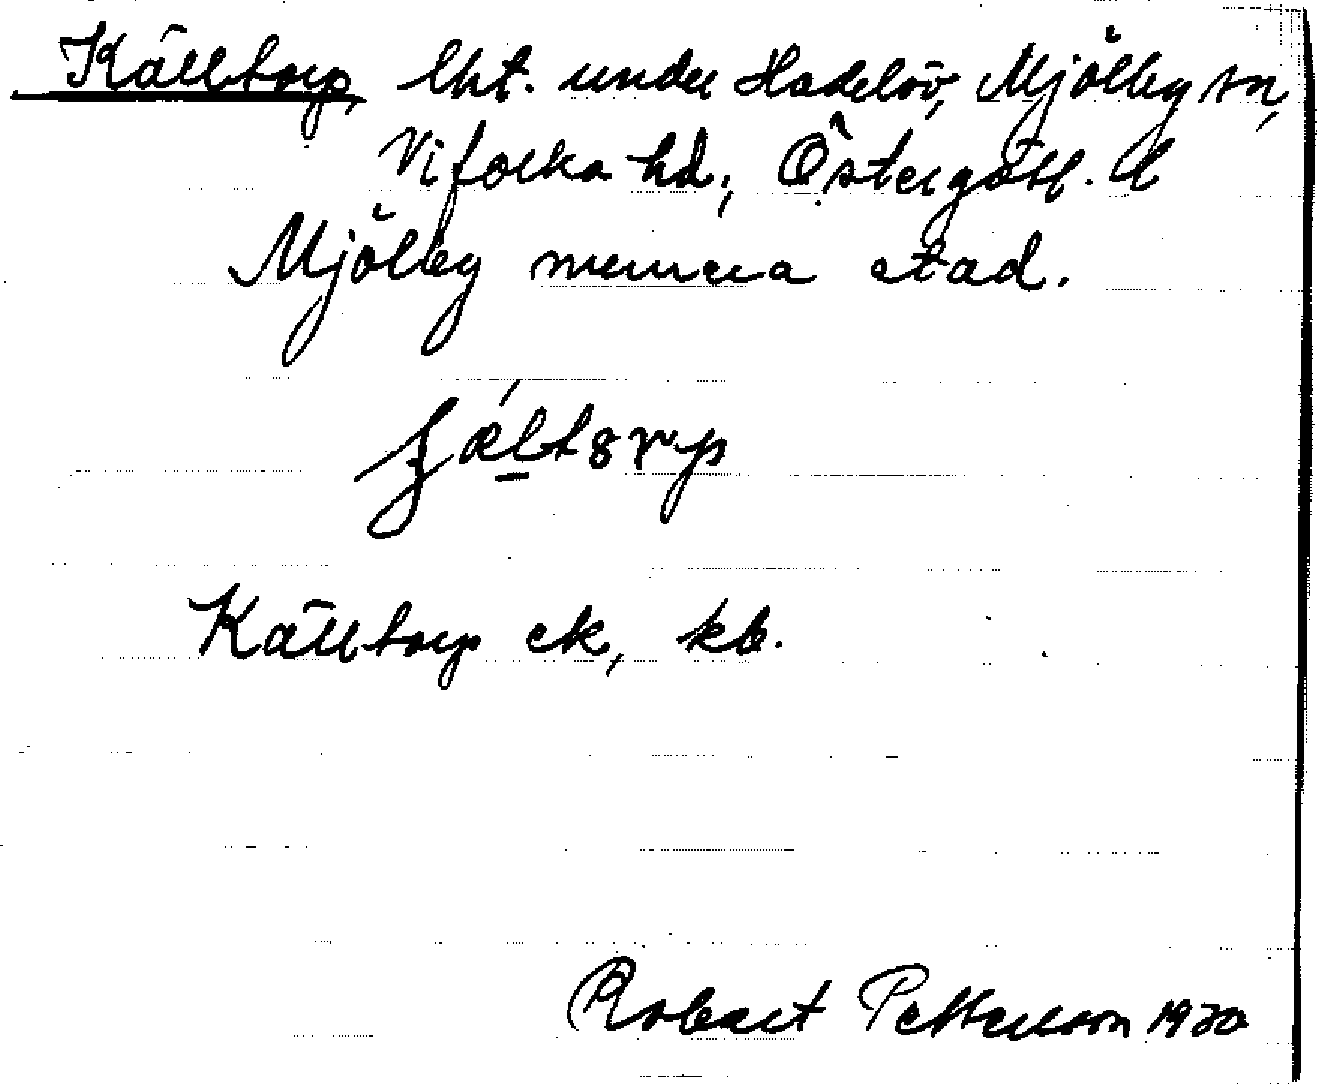 Källtorp, lht. under Hadelöv, Mjölby sn,
Vifolka hd; Östergötl. l
Mjölby numera stad.
Källtorp ek, kb.
Robert Petterson 1930